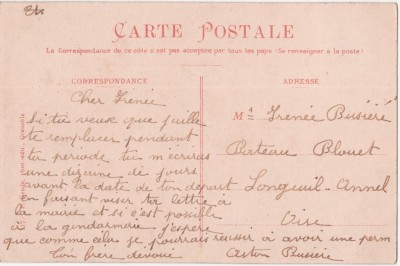 CARTE POSTALE
La Correspondance de ce côté n'est pas acceptée par tous les pays (Se renseigner à la poste)
CORRESPONDANCE
ADRESSE
Cher Irénée
Si tu veux que j'aille
te remplacer pendant
ta période tu m'écriras
une dizaine de jours
avant la date de ton départ
en faisant viser ta lettre à
la mairie et si c'est possible
à la gendarmerie j'espère
que comme celas je pourrais réussir à avoir une perm
Ton frère dévoué Gaston Busière
Mr Irénée Busière
Bateau Blouet
Longueil-Annel
Oise